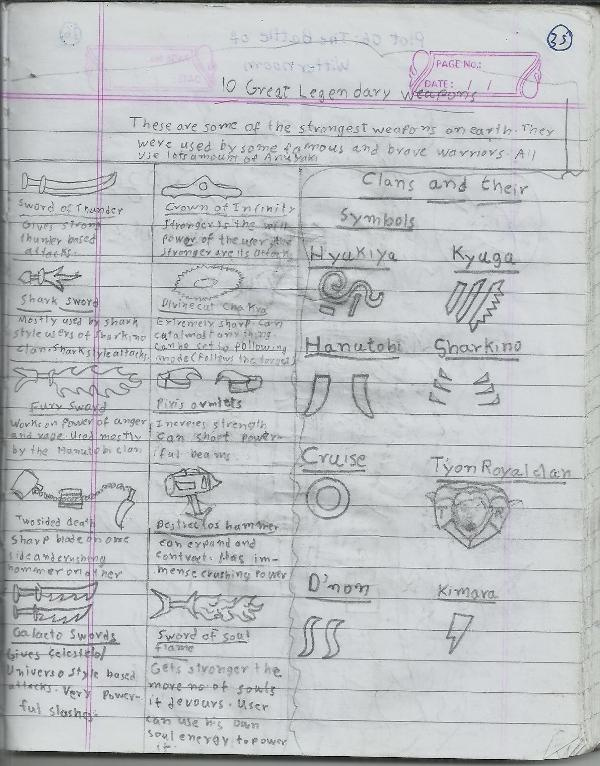 35
PAGE NO.:
DATE: / /
10 Great Legendary Weapons
These are some of the strongest weapons on earth. They
were used by some famous and brave warriors. All
use lots amount of
Sword of Thunder
Gives strong
thunder based
attacks.
Crown of Infinity
Stronger is the will
power of the user the
stronger are its attack
Shark Sword
Mostly used by shark
style users of Sharkino
clan. Shark style attacks.
Divine cut Chakra
Extremely sharp. can
cut almost any thing
can be set to following
mode (follows the target)
Fury Sword
Works on power of anger
and rage used mostly
by the Hanutobi clan
Piris armlets
Increses strength
can shoot power-
ful beams
Two sided death
Sharp blade on one
side and crushing
hammer on other
Destroctos hammer
can expand and
contract. Has im-
mense crushing power
Galacto Swords
Gives Celestelol
Universo style based
attacks. Very Power-
ful slashes.
Sword of soul
flame
Gets stronger the
more no of souls
it devours. User
can use his own
soul energy to power
it.
Clans and their
Symbols
Hyukiya
Kyuga
Hanutobi
Sharkino
Cruise
Tyon Royal clan
T R
D'non
Kimara